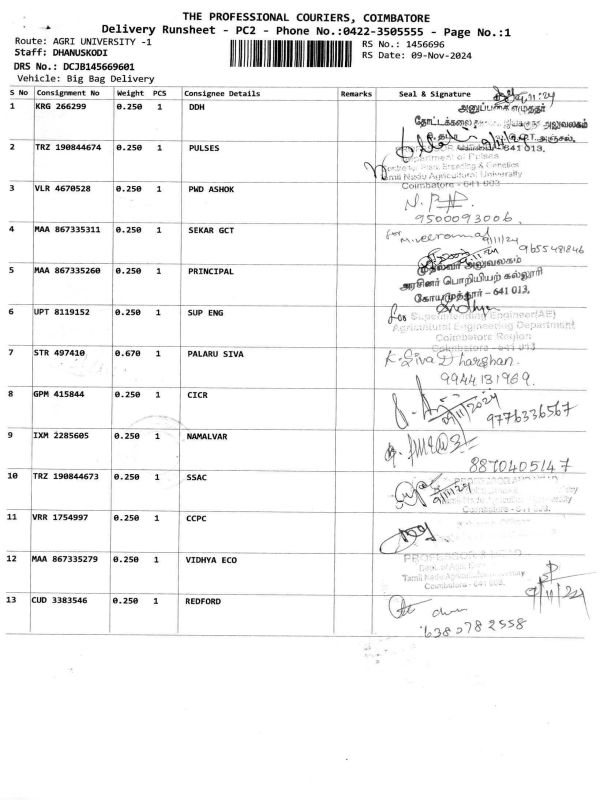 THE PROFESSIONAL COURIERS, COIMBATORE
Delivery Runsheet - PC2 - Phone No.:0422-3505555 - Page No.:1
Route: AGRI UNIVERSITY -1
RS No.: 1456696
Staff: DHANUSKODI
RS Date: 09-Nov-2024
DRS No.: DCJB145669601
Vehicle: Big Bag Delivery
S No Consignment No Weight PCS Consignee Details Remarks Seal & Signature
1 KRG 266299 0.250 1 DDH
அனுப்பகை எழுத்தர்
2 TRZ 190844674 0.250 1 PULSES
641 013.
Department of Pulses
Centre for Plant Breeding & Genetics
Tamil Nadu Agricultural University
Coimbatore - 641 003
3 VLR 4670528 0.250 1 PWD ASHOK
9500093006
4 MAA 867335311 0.250 1 SEKAR GCT
for M.veeramal 9/11/24
9655481846
5 MAA 867335260 0.250 1 PRINCIPAL
9/11/24
முதல்வர் அலுவலகம்
அரசினர் பொறியியற் கல்லூரி
கோயமுத்தூர் - 641 013.
6 UPT 8119152 0.250 1 SUP ENG
for Superintending Engineer(AE)
Agricultural Engineering Department
Coimbatore Region
Coimbatore - 641 013
7 STR 497410 0.670 1 PALARU SIVA
K. Siva Dharshan.
9944131969.
8 GPM 415844 0.250 1 CICR
09/11/2024
9776336567
9 IXM 2285605 0.250 1 NAMALVAR
8870405147
10 TRZ 190844673 0.250 1 SSAC
9/11/24
11 VRR 1754997 0.250 1 CCPC
12 MAA 867335279 0.250 1 VIDHYA ECO
PROFESSOR & HEAD
Tamil Nadu Agricultural University
Coimbatore - 641 003.
9/11/24
13 CUD 3383546 0.250 1 REDFORD
6380782558